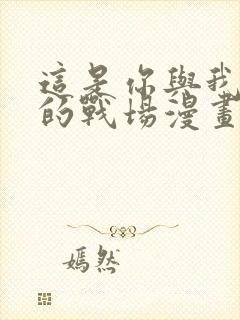 這是你與我
的戰場漫畫
嫣然